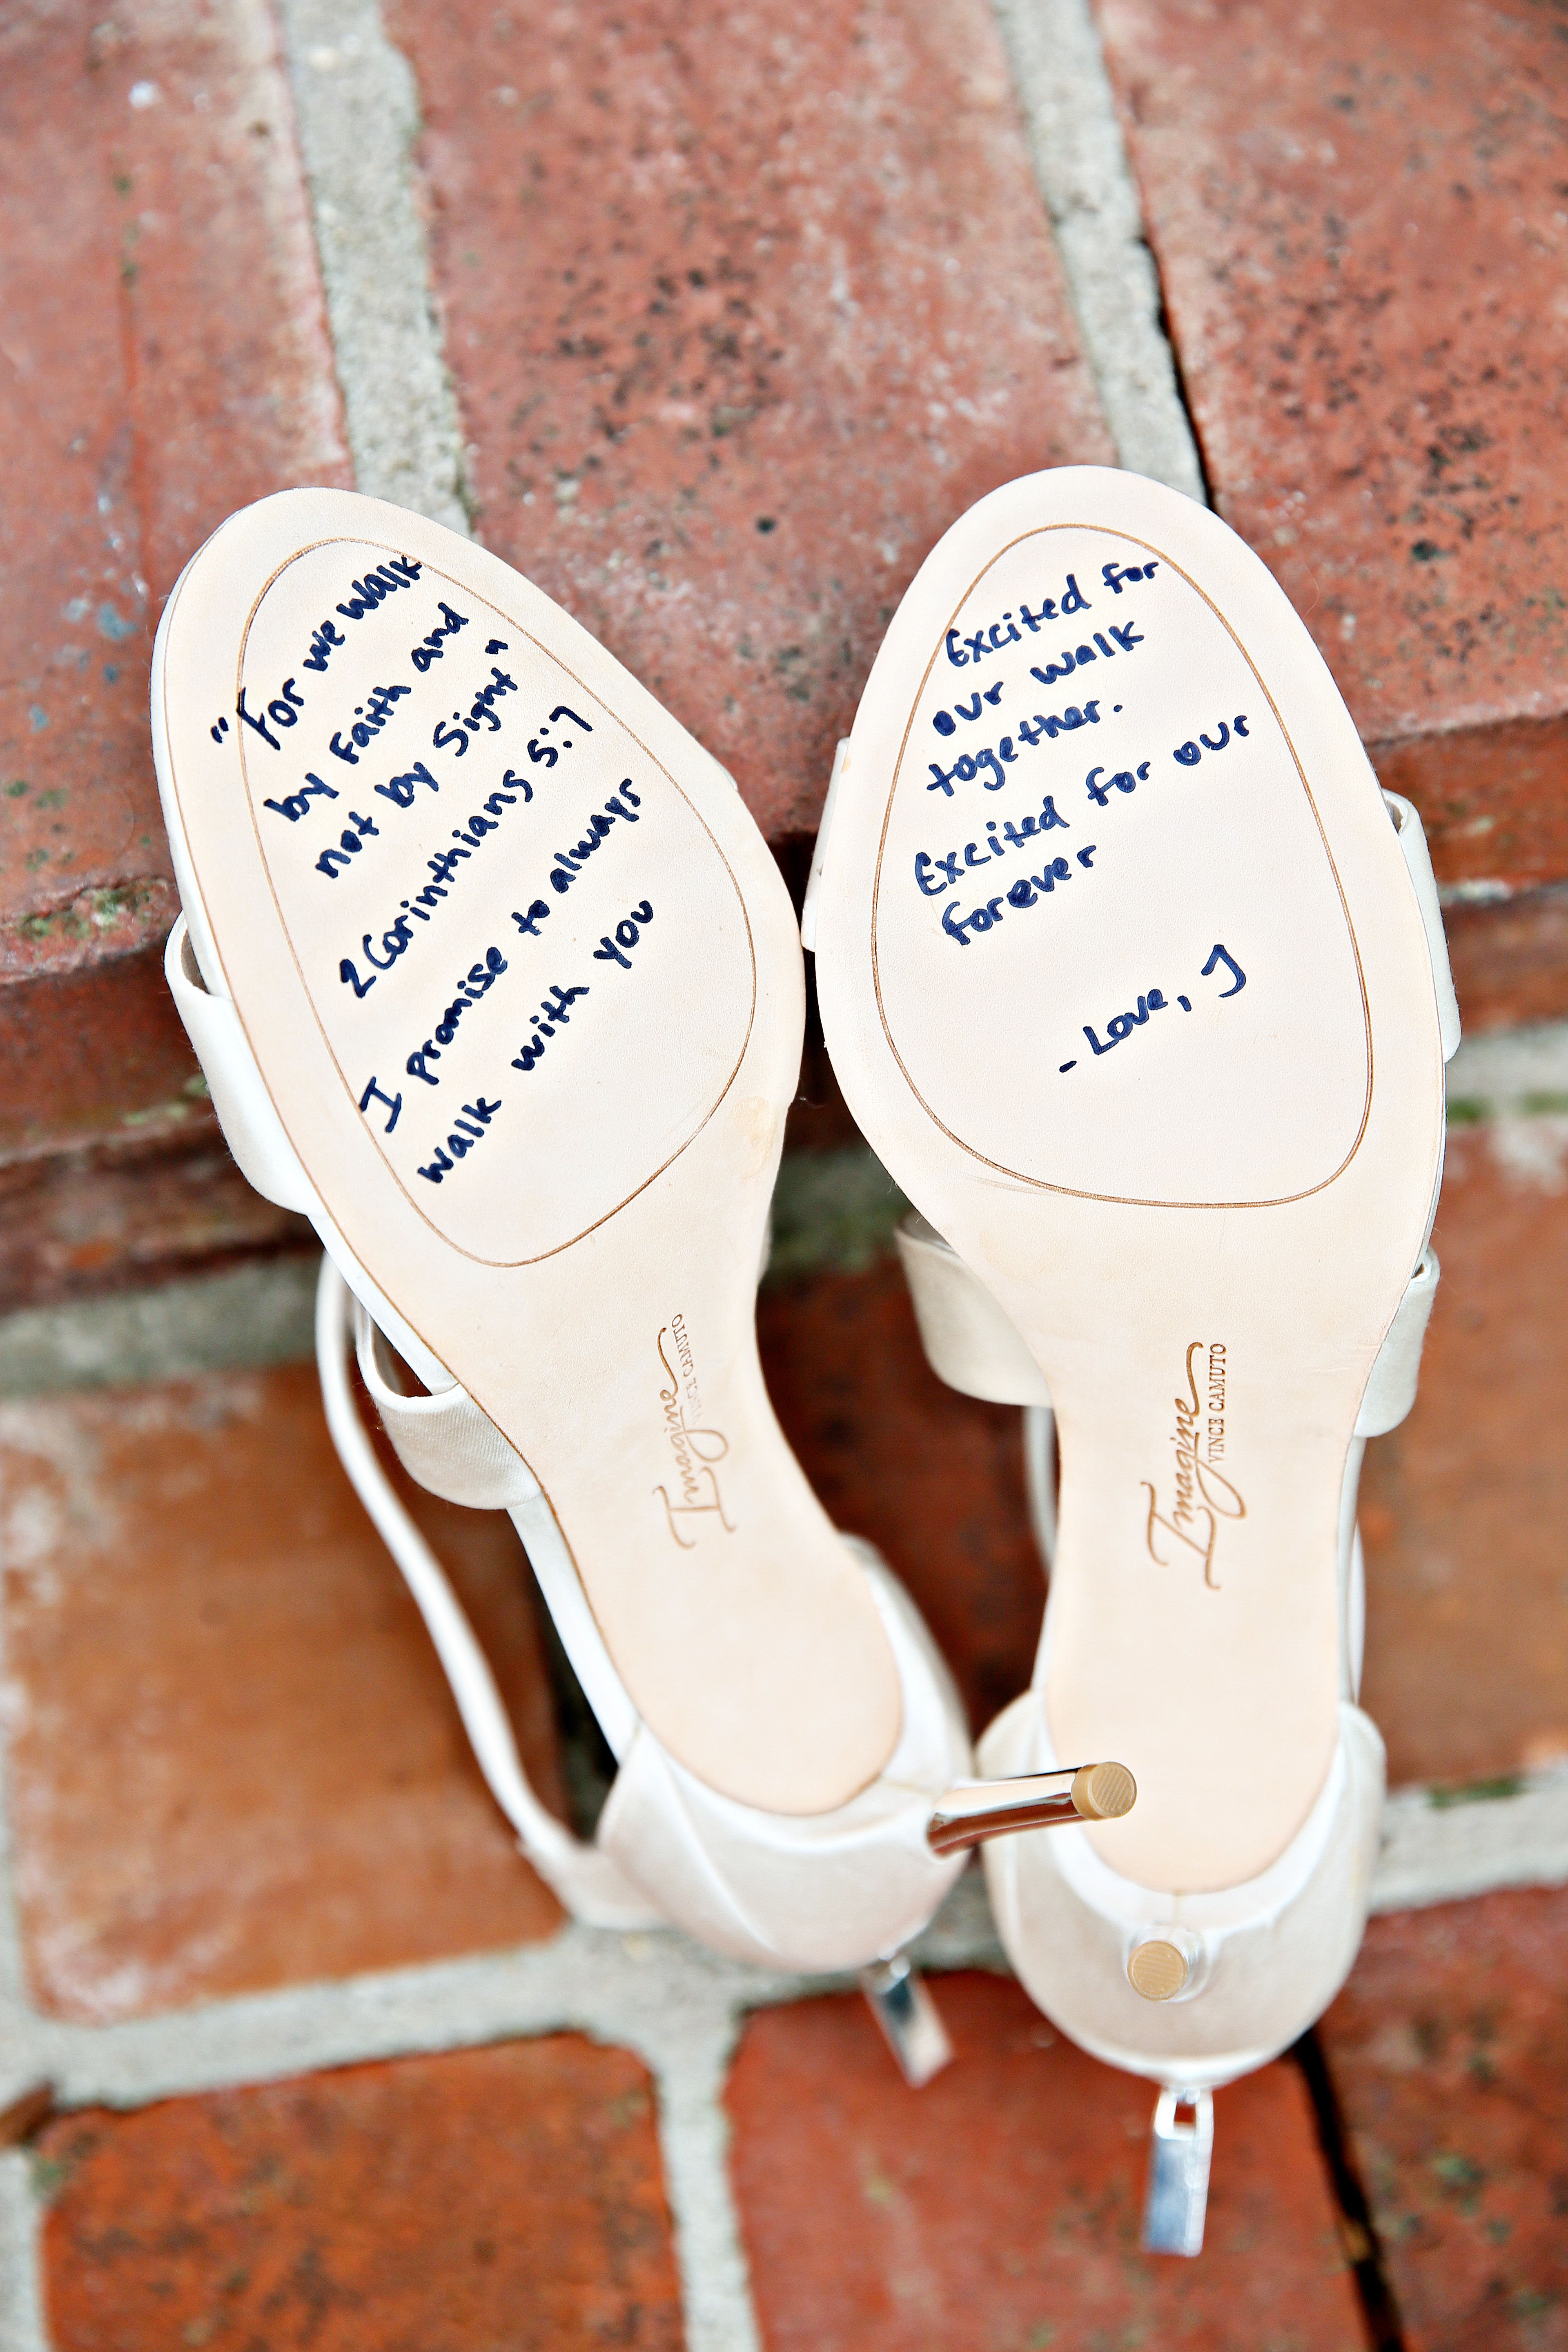 "For we walk
by Faith and
not by Sight"
2 Corinthians 5:7
I promise to always
walk with you
Imagine
VINCE CAMUTO
Excited for
our walk
together.
Excited for our
forever
- Love, J
Imagine
VINCE CAMUTO